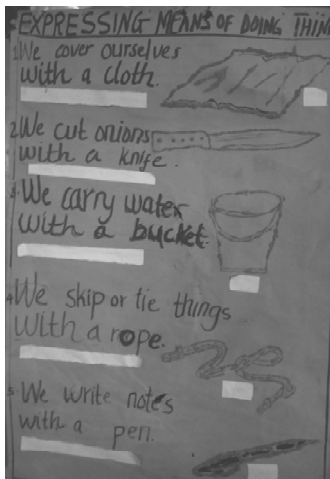 EXPRESSING MEANS OF DOING THIN
1. We cover ourselves
with a cloth.
2. We cut onions
with a knife.
3. We carry water
with a bucket.
4. We skip or tie things
with a rope.
5. We write notes
with a pen.